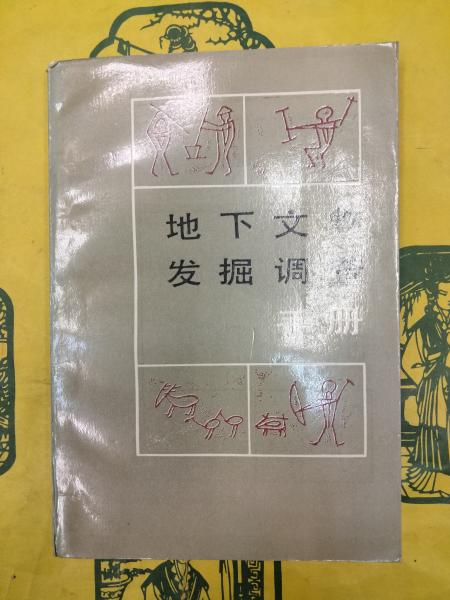 地下文物
发掘调查
手册